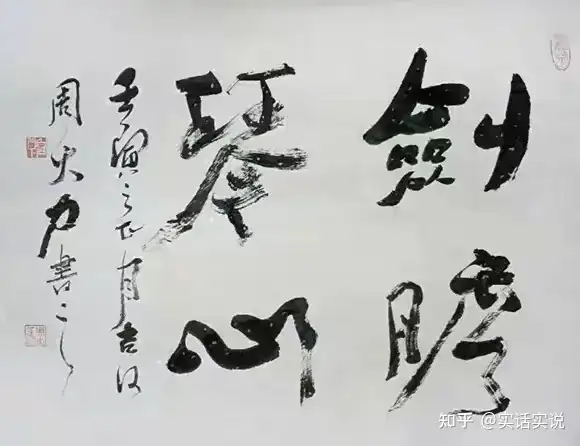 劍膽
琴心
壬寅之正月吉日
周火力書之
知乎 @实话实说